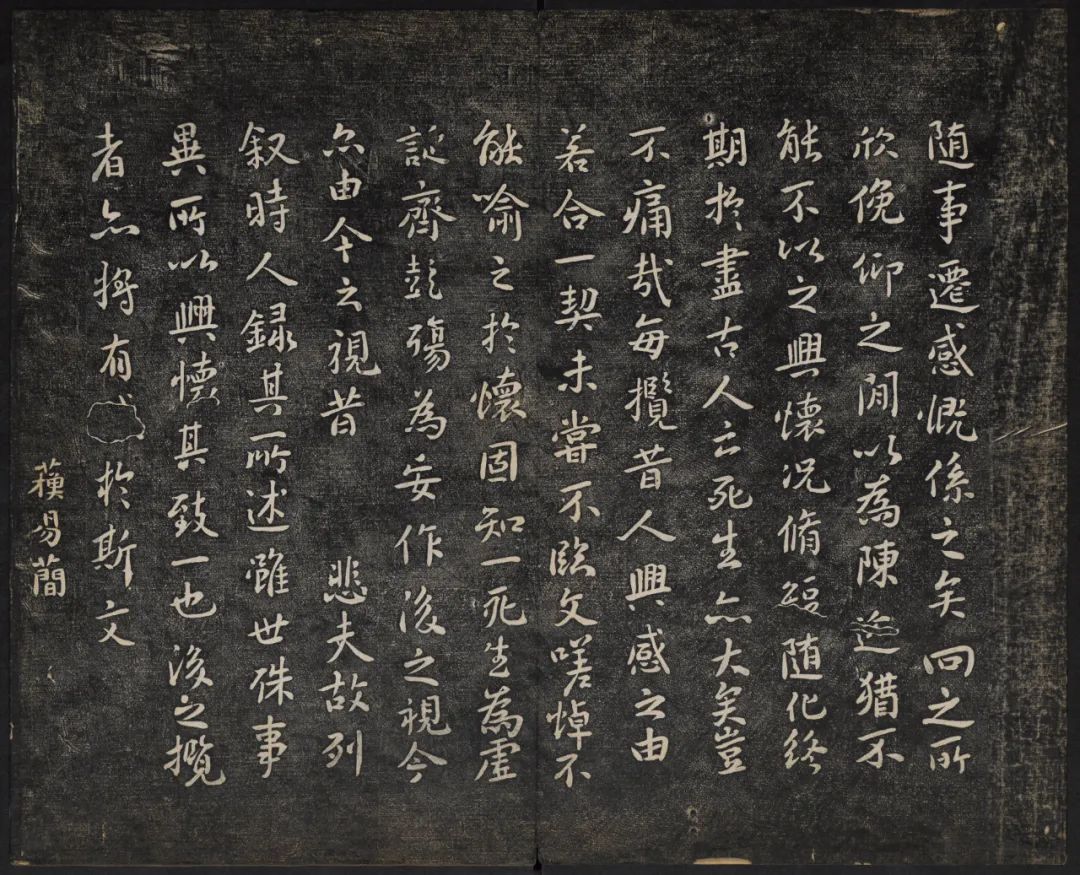 随事遷感慨係之矣向之所
欣俛仰之閒以為陳迹猶不
能不以之興懷况脩短随化終
期於盡古人云死生亦大矣豈
不痛哉每攬昔人興感之由
若合一契未嘗不臨文嗟悼不
能喻之於懷固知一死生為虛
誕齊彭殤為妄作後之視今
亦由今之視昔 悲夫故列
叙時人録其所述雖世殊事
異所以興懷其致一也後之攬
者亦将有於斯文
蘇易簡